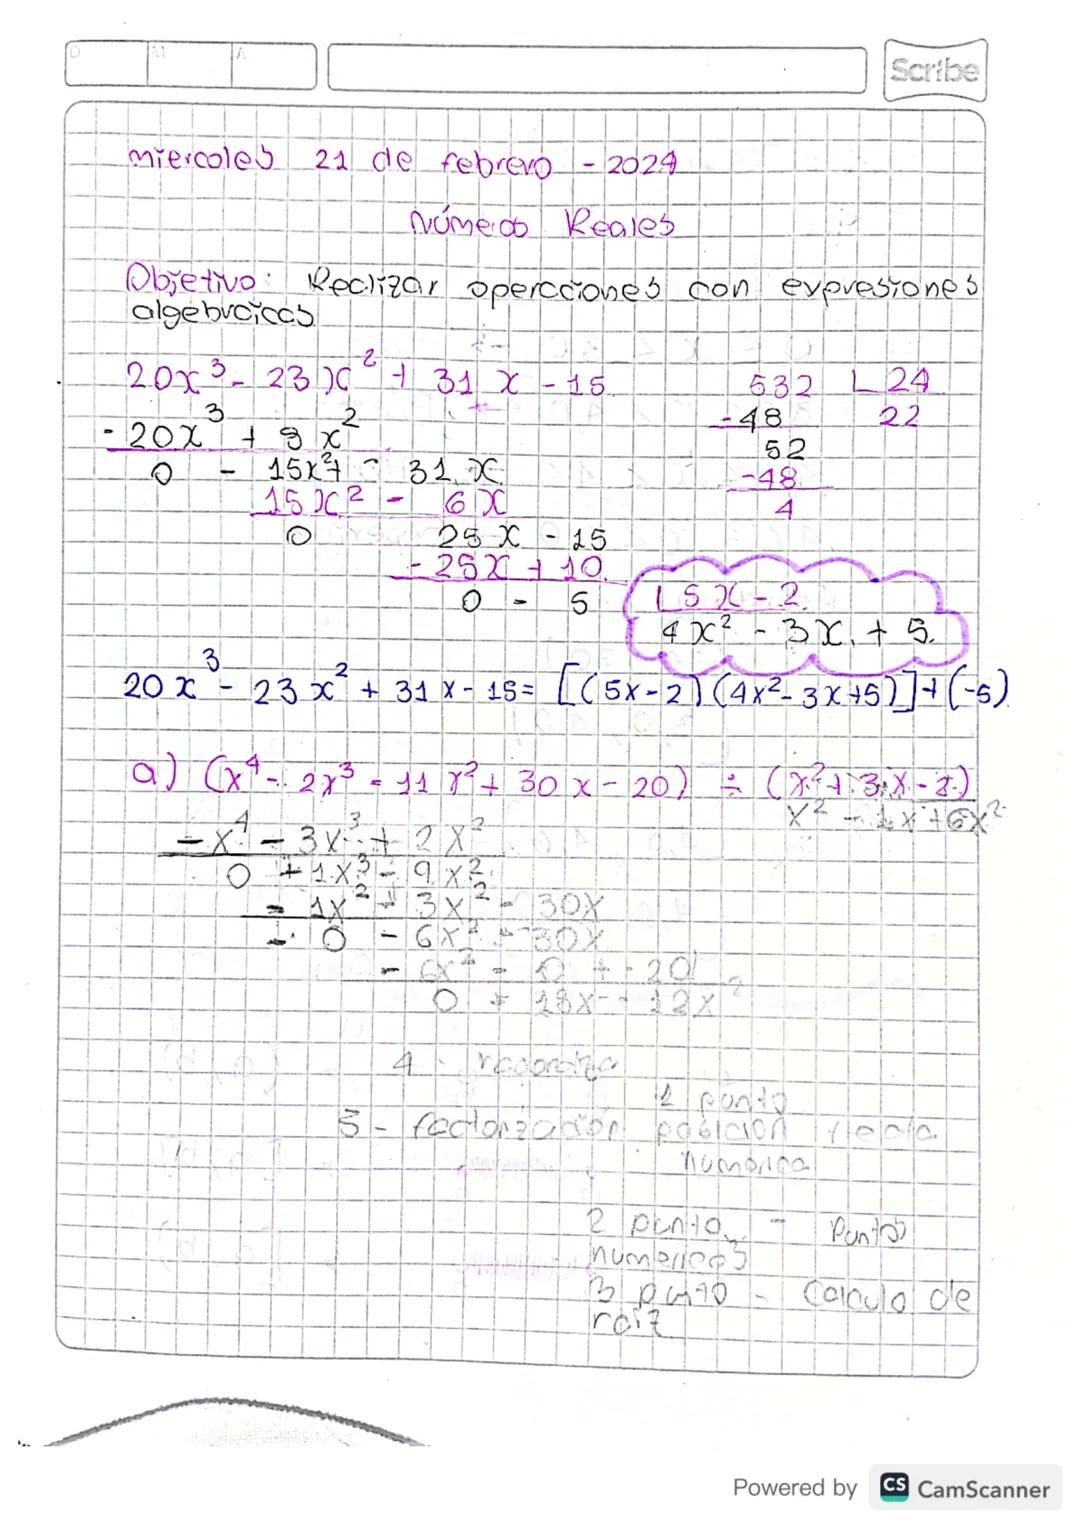 D M A
Scribe
miercoles 21 de febrero - 2024
Números Reales
Objetivo: Realizar operaciones con expresiones
algebraicas
20x³ - 23x² + 31x - 15
- 20x³ + 8x²
0 - 15x² + 31x
15x² - 6x
0 25x - 15
- 25x + 10
0 - 5
532 | 24
-48 22
52
-48
4
| 5x - 2
4x² - 3x + 5
20x³ - 23x² + 31x - 15 = [(5x-2)(4x²-3x+5)] + (-5)
a) (x⁴ - 2x³ - 11x² + 30x - 20) ÷ (x² + 3x - 2)
- x⁴ - 3x³ + 2x²
0 + 1x³ - 9x²
- 1x² + 3x² - 30x
- 0 - 6x² - 30x
0 + 18x - 12x
4 -
1 punto
5 - factorización posicion recta
numerica
2 punto - Puntos
numericos
3 punto - Calculo de
raiz
Powered by CS CamScanner